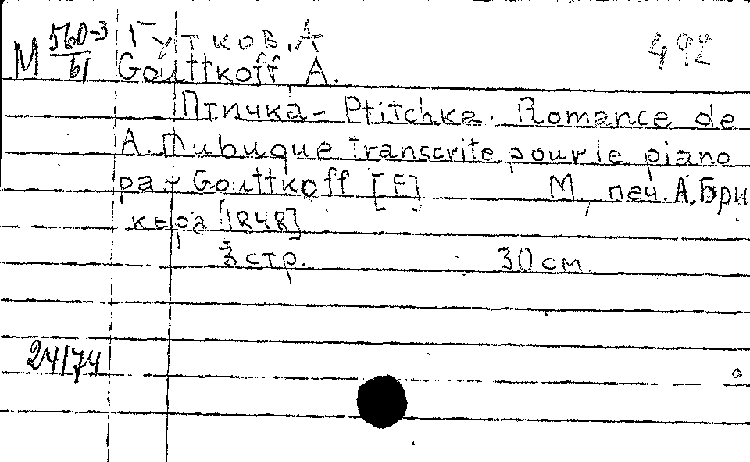 М 560-3/61 Гутков, А 492
Gouttkoff, A.
Птичка – Ptitchka. Romance de
A. Dubuque transcrite pour le piano
par Gouttkoff [F] М., печ. А. Бри
кера [1848]
3 стр. 30 см.
24174